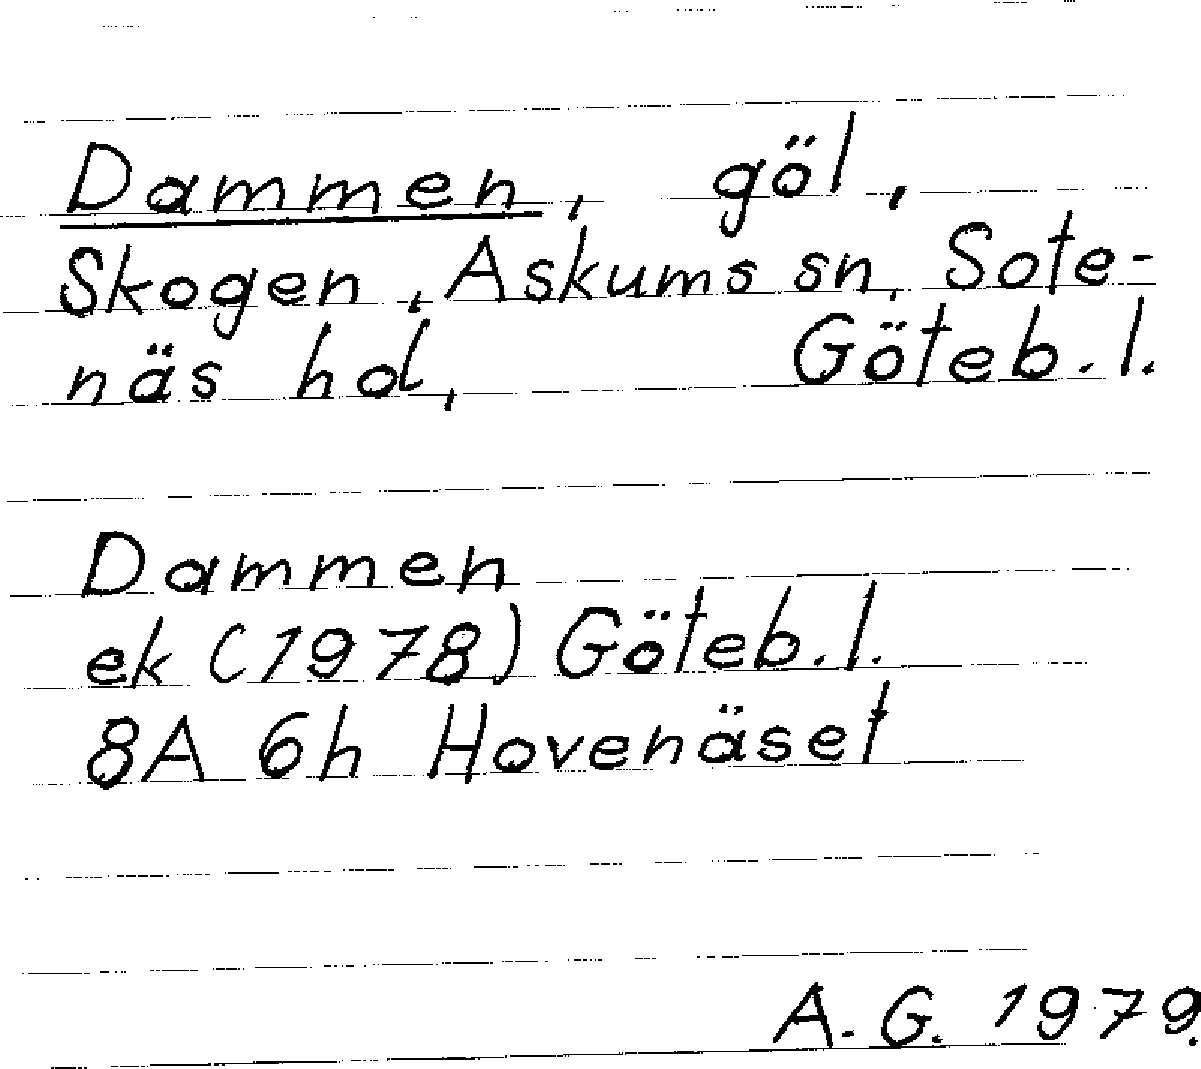 Dammen, göl,
Skogen, Askums sn, Sote-
näs hd, Göteb. l.
Dammen
ek (1978) Göteb. l.
8A 6h Hovenäset
A. G. 1979.